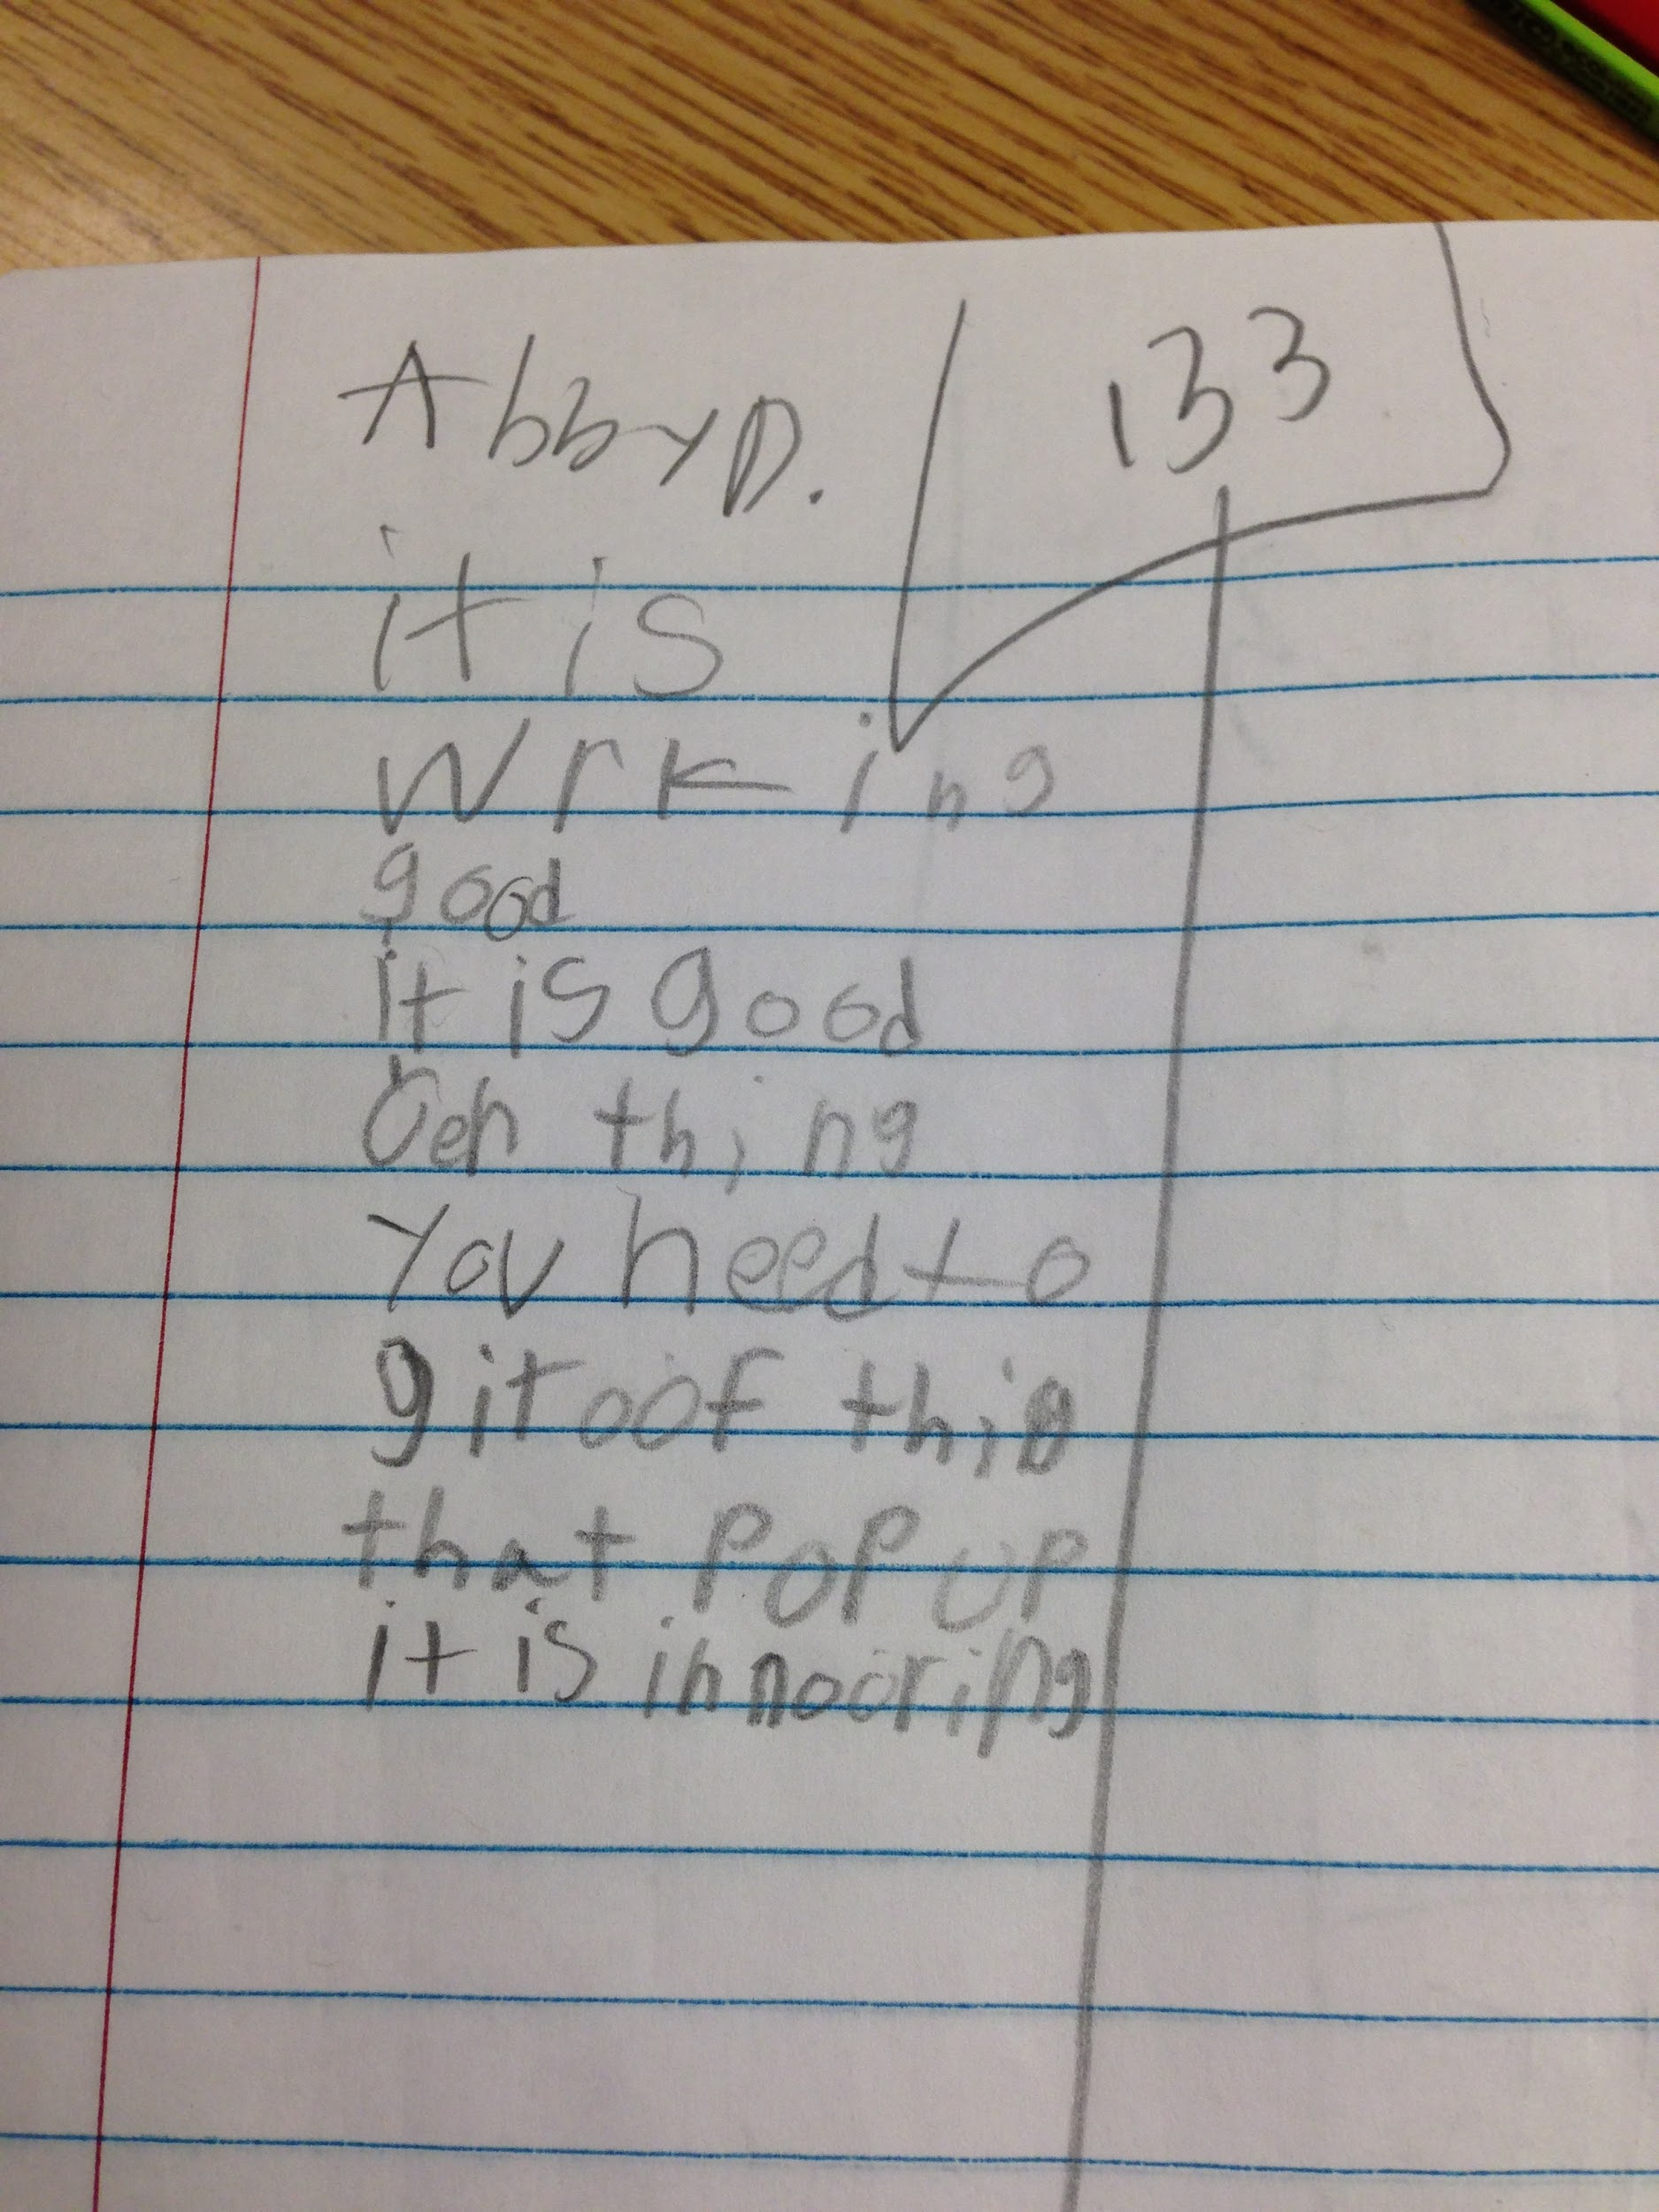 Abby D. 133
it is
wrking
good
it is good
Oen thing
you need to
git oof this
that pop up
it is innooring